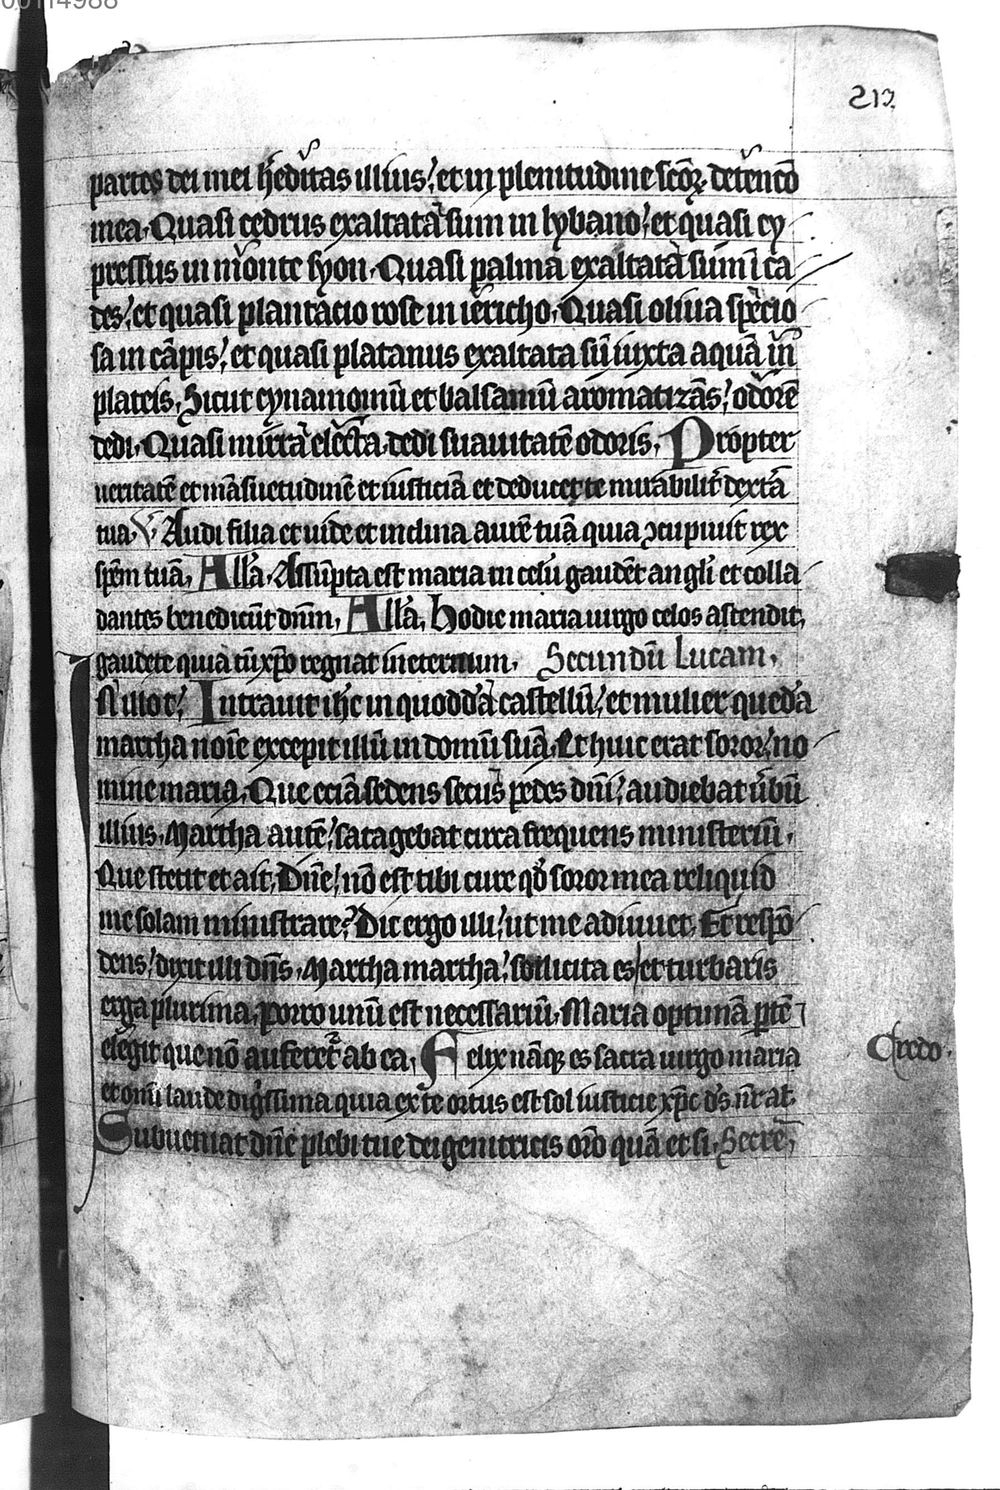 00114988
213
partes dei mei h̓editas illius. et in plenitudine scōꝝ detenco̅
mea. Quasi cedrus exaltata sum in lybano. et quasi cy
pressus in monte syon. Quasi palma exaltata sum ī ca
des. et quasi plantacio rose in iericho. Quasi oliua specio
sa in cāpis. et quasi platanus exaltata sū iuxta aquā in
plateis. Sicut cynamomū et balsamū aromatizās. odorē
dedi. Quasi mirra electa dedi suauitatē odoris. Propter
ueritatē et māsuetudinē et iusticiā et deducet te mirabilit̓ dextā
tua. V̓. Audi filia et uide et inclina aurē tuā quia ɔcupiuit rex
spēm tuā. All̓a. Assūpta est maria in celū gaudēt angli et colla
dantes benedicūt dn̄m. All̓a. Hodie maria uirgo celos ascendit.
gaudete quia cū xp̄o regnat in eternum. Secundū Lucam.
In illo t̓. Intrauit ih̄c in quoddā castellū. et mulier quedā
martha noīe excepit illū in domū suā. Et huic erat soror. no
mine maria. Que eciā sedens secus pedes dn̄i. audiebat ūbū
illius. Martha autē. satagebat circa frequens ministeriū.
Que stetit et ait. Dn̄e. nō est tibi cure qd̓ soror mea reliquid
me solam ministrare? Dic ergo illi. ut me adiuuet. Et respō
dens. dixit illi dn̄s. Martha martha. sollicita es et turbaris
erga plurima. porro unū est necessariū. Maria optimā ptē
elegit que nō auferet̓ ab ea. Felix nāqꝫ es sacra uirgo maria
Credo.
et omī laude digssima quia ex te ortus est sol iusticie xp̄c ds̄ nr̄ al̓.
Subueniat dn̄e plebi tue dei genitricis orō quā etsi. Secre̅.